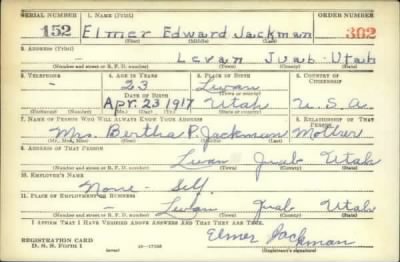 SERIAL NUMBER 1. NAME (Print) ORDER NUMBER
152 Elmer Edward Jackman 302
(First) (Middle) (Last)
2. ADDRESS (Print)
- Levan Juab Utah
(Number and street or R. F. D. number) (Town) (County) (State)
3. TELEPHONE 4. AGE IN YEARS 5. PLACE OF BIRTH 6. COUNTRY OF CITIZENSHIP
- 23 Levan
DATE OF BIRTH (Town or county)
Apr. 23 1917 Utah U. S. A.
(Exchange) (Number) (Mo.) (Day) (Yr.) (State or country)
7. NAME OF PERSON WHO WILL ALWAYS KNOW YOUR ADDRESS 8. RELATIONSHIP OF THAT PERSON
Mrs. Bertha P. Jackman Mother
(Mr., Mrs., Miss) (First) (Middle) (Last)
9. ADDRESS OF THAT PERSON
Levan Juab Utah
(Number and street or R. F. D. number) (Town) (County) (State)
10. EMPLOYER'S NAME
None - Self
11. PLACE OF EMPLOYMENT OR BUSINESS
- Levan Juab Utah
(Number and street or R. F. D. number) (Town) (County) (State)
I AFFIRM THAT I HAVE VERIFIED ABOVE ANSWERS AND THAT THEY ARE TRUE.
REGISTRATION CARD
D. S. S. Form 1 (over) 16-17105 Elmer Jackman
(Registrant's signature)